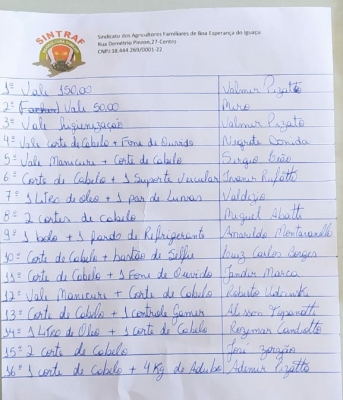 SINTRAF
Sindicato dos Agricultores Familiares de Boa Esperança do Iguaçu
Rua Demétrio Pinzon,27-Centro
CNPJ:18.444.269/0001-22
1º Vale 150,00 Valmir Pizatto
2º Vale 50,00 Miro
3º Vale higienização Valmir Pizato
4º Vale corte de Cabelo + Fone de Ouvido Negrete Donida
5º Vale Manicure + Corte de Cabelo Sergio Bião
6º Corte de Cabelo + 1 Suporte Veicular Ivanir
7º 1 Litro de oleo + 1 par de Luvas Valdizio
8º 2 cortes de cabelo Miguel Abatti
9º 1 bolo + 1 fardo de Refrigerante Amarildo
10º Corte de Cabelo + bastão de Selfie Luiz Carlos Borges
11º Corte de Cabelo + 1 Fone de Ouvido Jandir Marca
12º Vale Manicure + Corte de Cabelo Roberto
13º Corte de Cabelo + 1 controle Gamer Alisson
14º 1 Litro de Óleo + 1 corte de Cabelo Rozemar Candiotto
15º 2 corte de Cabelo José
16º 1 corte de Cabelo + 4 Kg de Adubo Ademir Pizatto